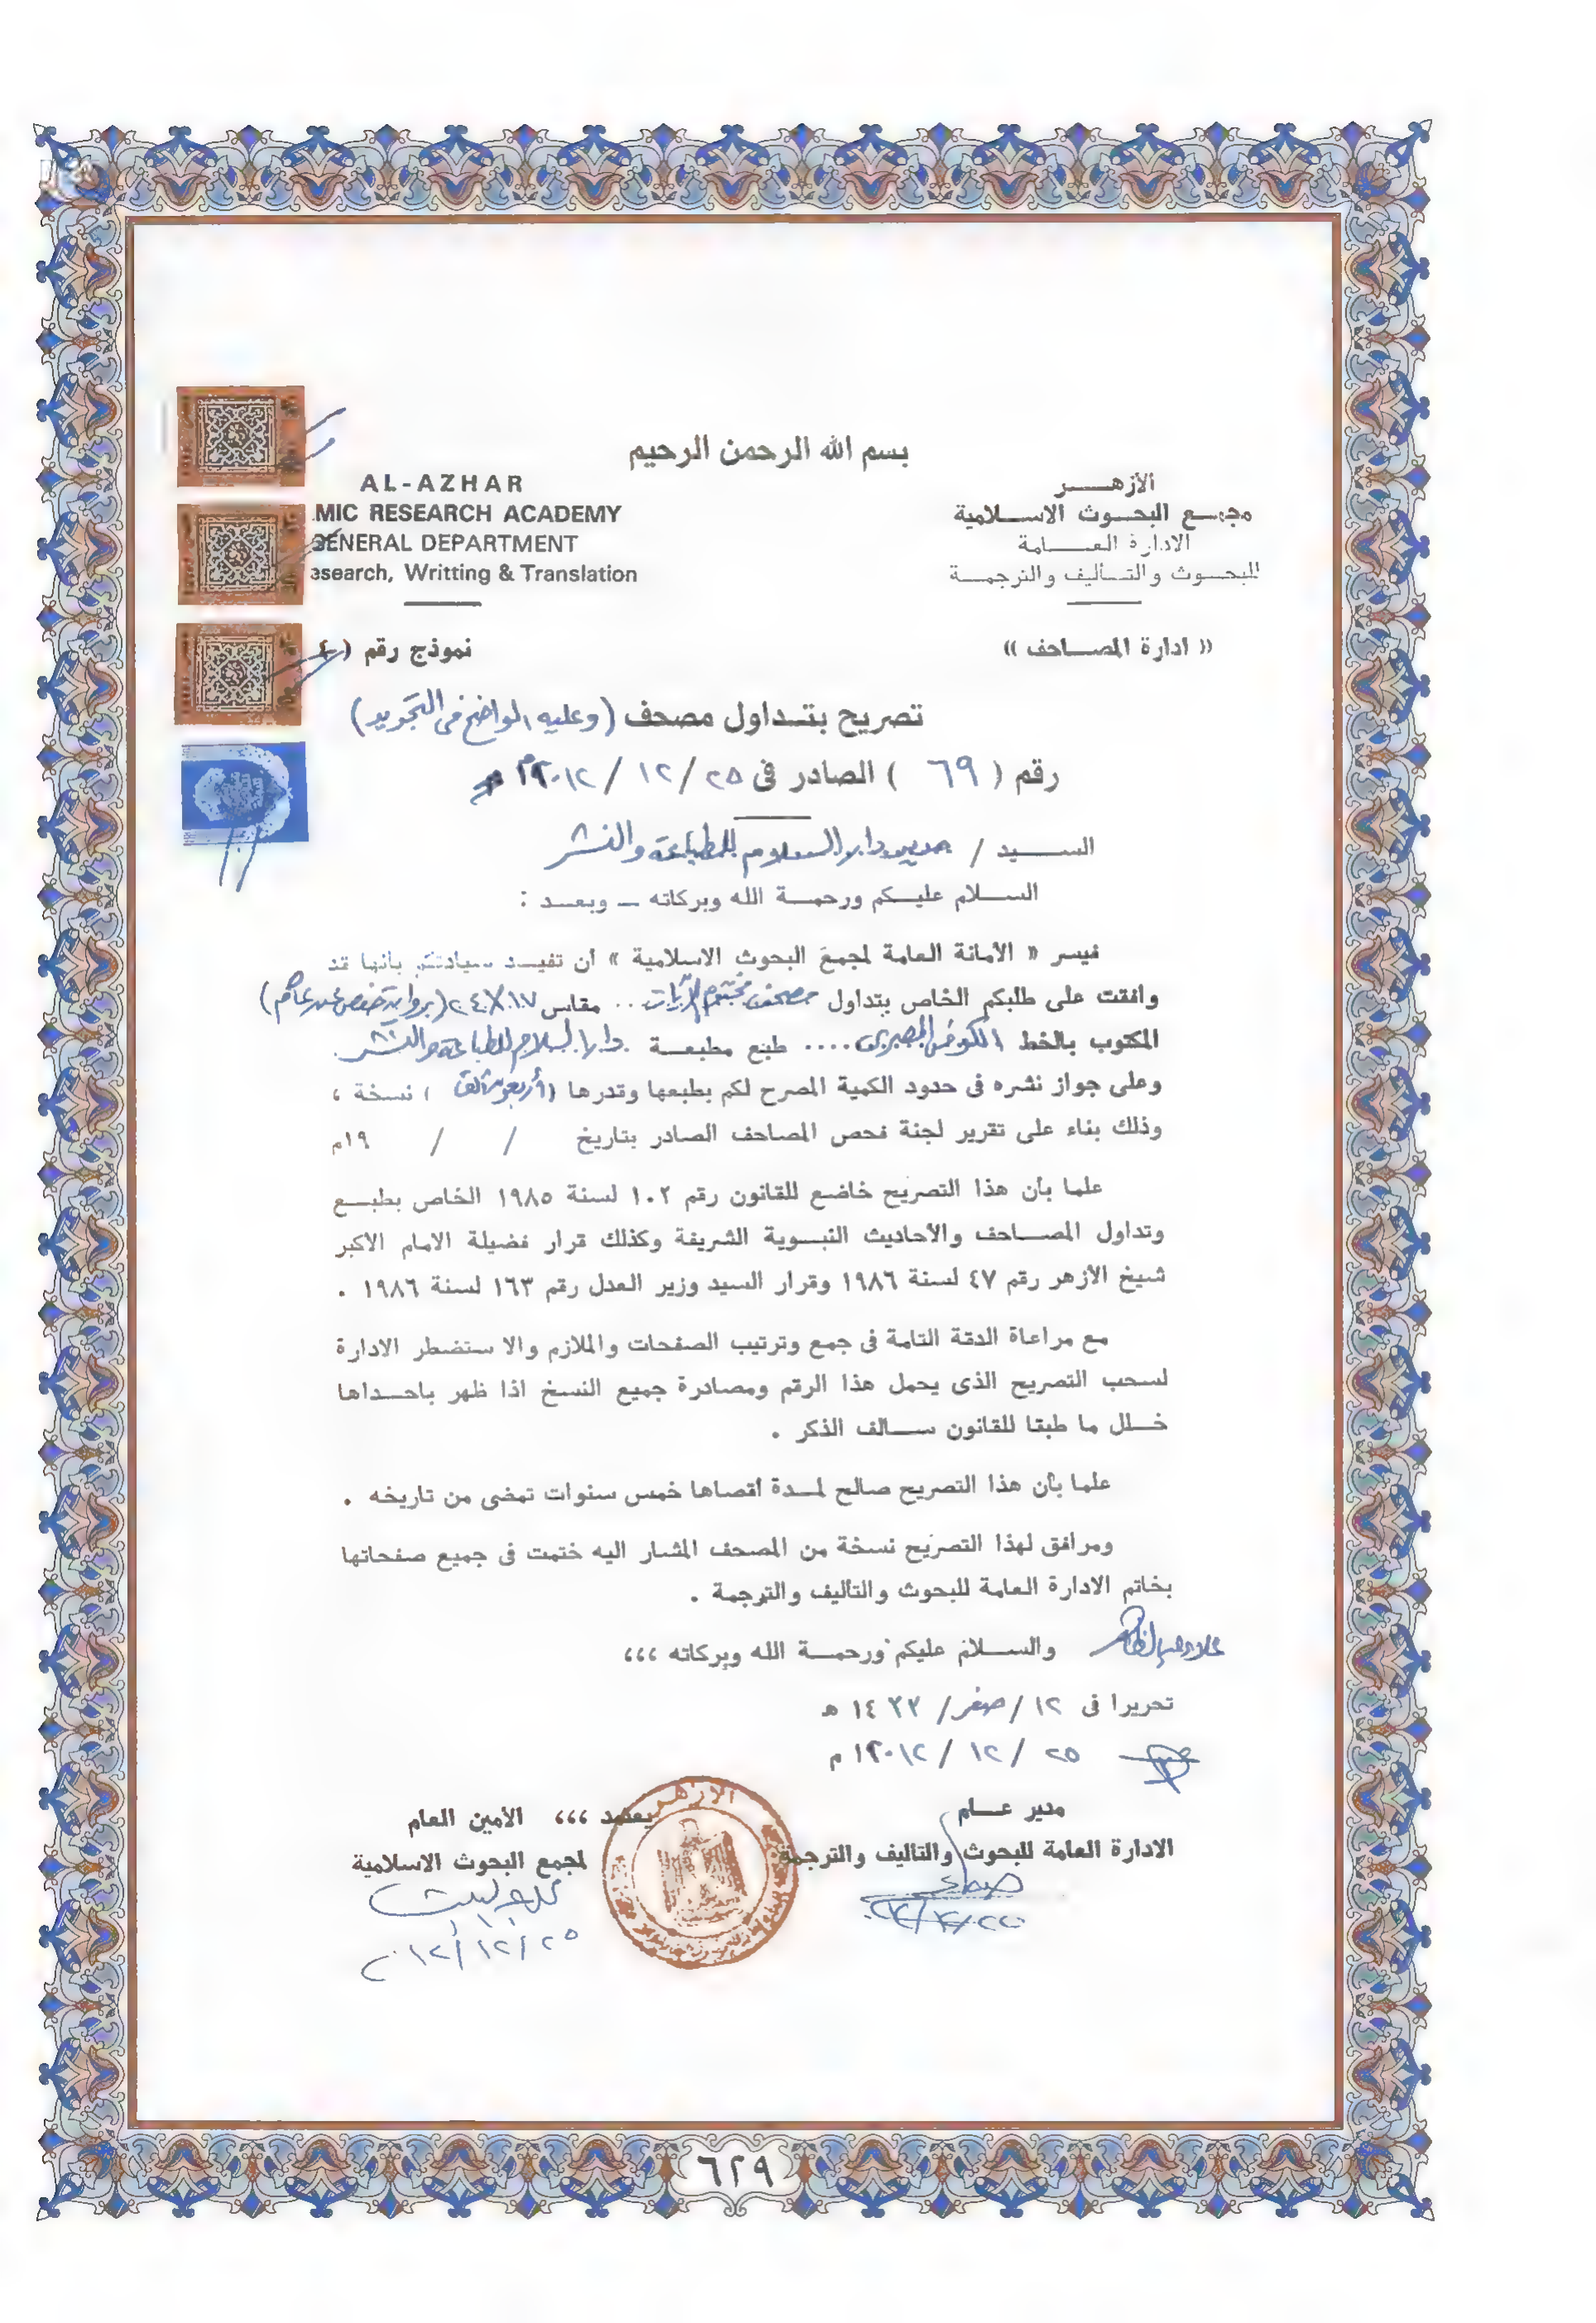 بسم الله الرحمن الرحيم
الأزهـــر
مجمـع البحـوث الاســلامية
الادارة العــــامة
للبحـوث والتـأليف والترجمـة
AL-AZHAR
MIC RESEARCH ACADEMY
GENERAL DEPARTMENT
esearch, Writting & Translation
« ادارة المصــاحف »
نموذج رقم ( ٤
تصريح بتــداول مصحف (وعليه الواضح فى التجويد)
رقم ( ٦٩ ) الصادر فى ٢٥ / ١٢ / ٢٠١٢ م
الســـيد / مدير دار السلام للطباعة والنشر
الســلام عليـكم ورحمـة الله وبركاته ـ وبعـد :
فيسر « الأمانة العامة لمجمع البحوث الاسلامية » أن تفيـد سيادتكم بأنها قد
وافقت على طلبكم الخاص بتداول مصحف مختم الآيات .. مقاس ١٧×٢٤ (برواية حفص عن عاصم)
المكتوب بالخط الكوفى المصرى .... طبع مطبعـة دار السلام للطباعة والنشر
وعلى جواز نشره فى حدود الكمية المصرح لكم بطبعها وقدرها (أربعون ألف ) نسخة ،
وذلك بناء على تقرير لجنة فحص المصاحف الصادر بتاريخ / / ١٩م
علما بأن هذا التصريح خاضع للقانون رقم ١٠٢ لسنة ١٩٨٥ الخاص بطبـع
وتداول المصـاحف والأحاديث النبـوية الشريفة وكذلك قرار فضيلة الامام الاكبر
شيخ الأزهر رقم ٤٧ لسنة ١٩٨٦ وقرار السيد وزير العدل رقم ١٦٣ لسنة ١٩٨٦ .
مع مراعاة الدقة التامة فى جمع وترتيب الصفحات والملازم والا ستضطر الادارة
لسحب التصريح الذى يحمل هذا الرقم ومصادرة جميع النسخ اذا ظهر باحـداها
خــلل ما طبقا للقانون ســالف الذكر .
علما بأن هذا التصريح صالح لمـدة أقصاها خمس سنوات تمضى من تاريخه .
ومرافق لهذا التصريح نسخة من المصحف المشار اليه ختمت فى جميع صفحاتها
بخاتم الادارة العامة للبحوث والتأليف والترجمة .
والســلام عليكم ورحمـــة الله وبركاته ،،،
تحريرا فى ١٢ / صفر / ١٤٣٣ هـ
٢٥ / ١٢ / ٢٠١٢ م
مدير عــام
الادارة العامة للبحوث والتأليف والترجمة
يعتمد ،،، الأمين العام
لمجمع البحوث الاسلامية
٢٥ / ١٢ / ٢٠١٢
الازهر
٦٢٩